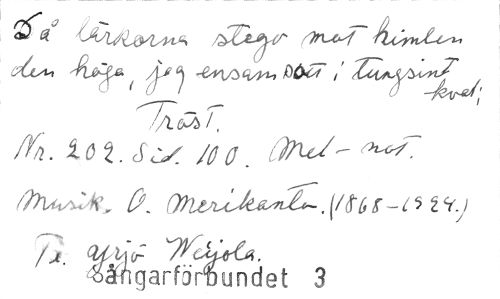 Då lärkorna stego mot himlen
den höga, jag ensam satt i tungsint
kval;
Tröst.
Nr. 202. Sid. 100. Mel-not.
Musik. O. Merikanto. (1868-1924.)
Te. Yrjö Weijola.
Sångarförbundet 3